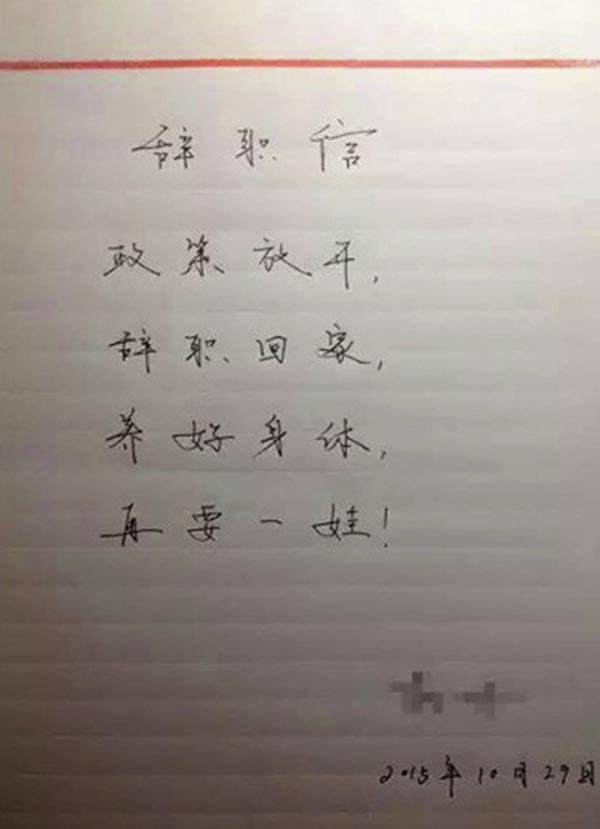 辞职信
政策放开,
辞职回家,
养好身体,
再要一娃!
2015年10月29日